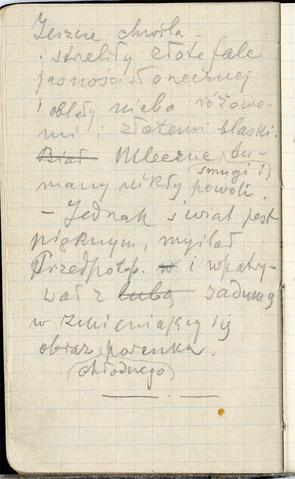 Jeszcze chwila –
i strzeliły złote fale
jasności słonecznej
i oblały niebo różowe-
mi i złotemi blaski.
Mleczne (smugi i) tu-
many nikły powoli.
– Jednak świat jest
pięknym, myślał
Przedpotop. i wpatry-
wał z lubą zadumą
w zmieniający się
obraz poranka.
(chłodnego)